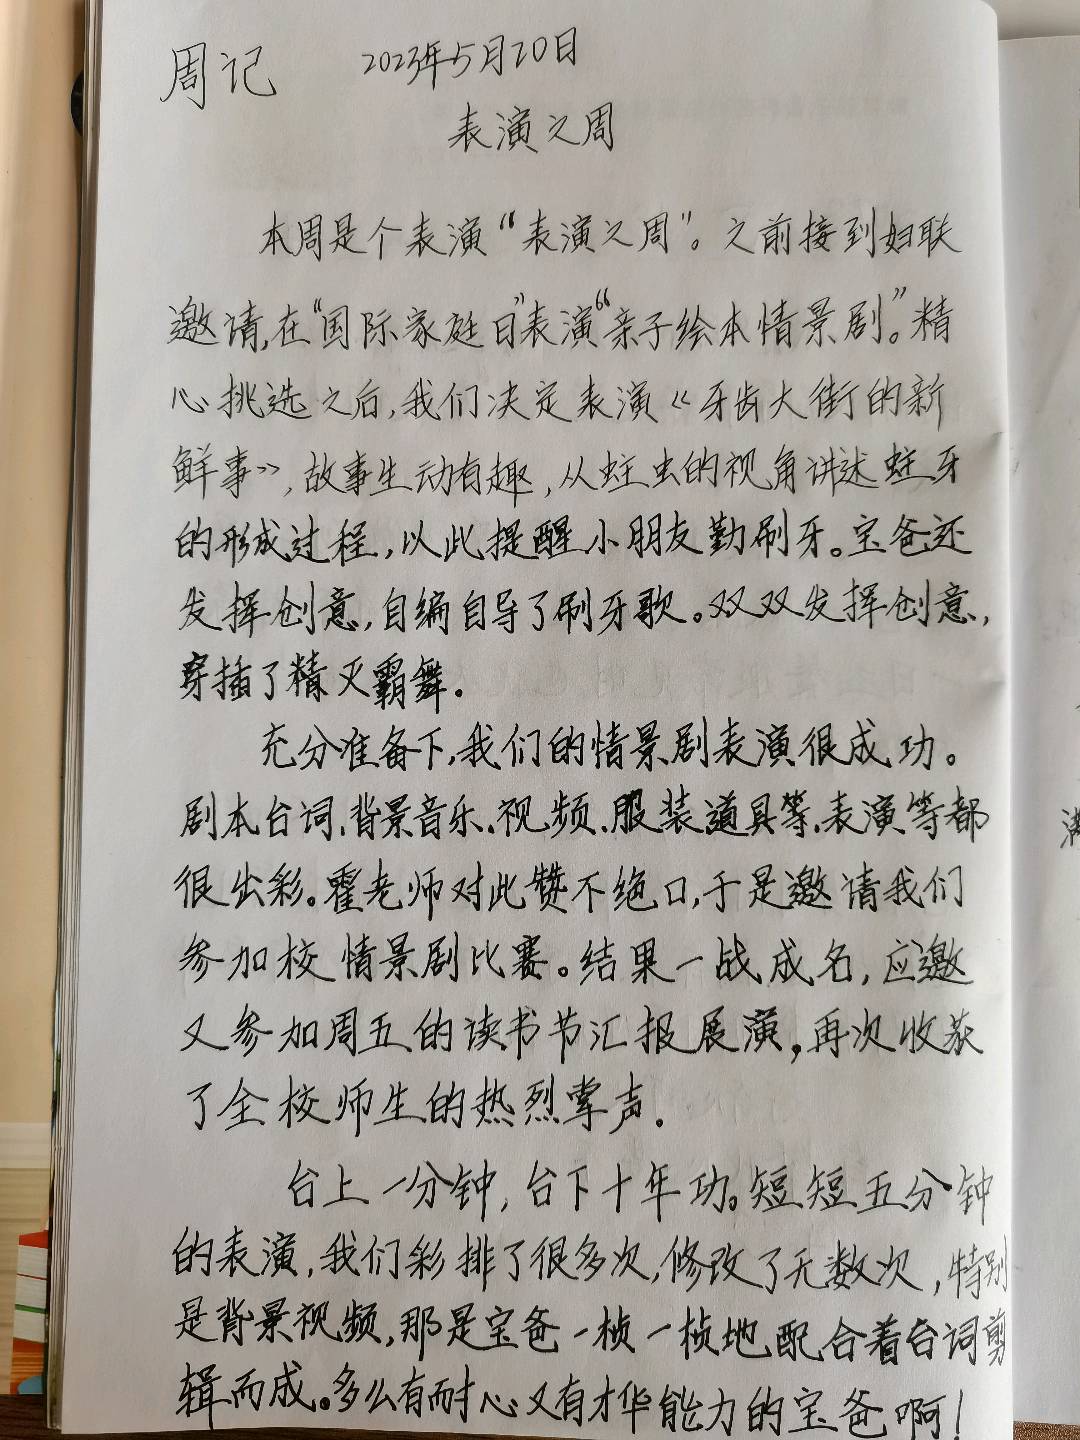 周记 2023年5月20日
表演之周
本周是个表演“表演之周”。之前接到妇联
邀请,在“国际家庭日”表演“亲子绘本情景剧”。精
心挑选之后,我们决定表演《牙齿大街的新
鲜事》,故事生动有趣,从蛀虫的视角讲述蛀牙
的形成过程,以此提醒小朋友勤刷牙。宝爸还
发挥创意,自编自导了刷牙歌。双双发挥创意,
穿插了精灭霸舞.
充分准备下,我们的情景剧表演很成功。
剧本台词、背景音乐、视频、服装道具等、表演等都
很出彩。霍老师对此赞不绝口,于是邀请我们
参加校情景剧比赛。结果一战成名,应邀
又参加周五的读书节汇报展演,再次收获
了全校师生的热烈掌声.
台上一分钟,台下十年功。短短五分钟
的表演,我们彩排了很多次,修改了无数次,特别
是背景视频,那是宝爸一桢一桢地配合着台词剪
辑而成。多么有耐心又有才华能力的宝爸啊!